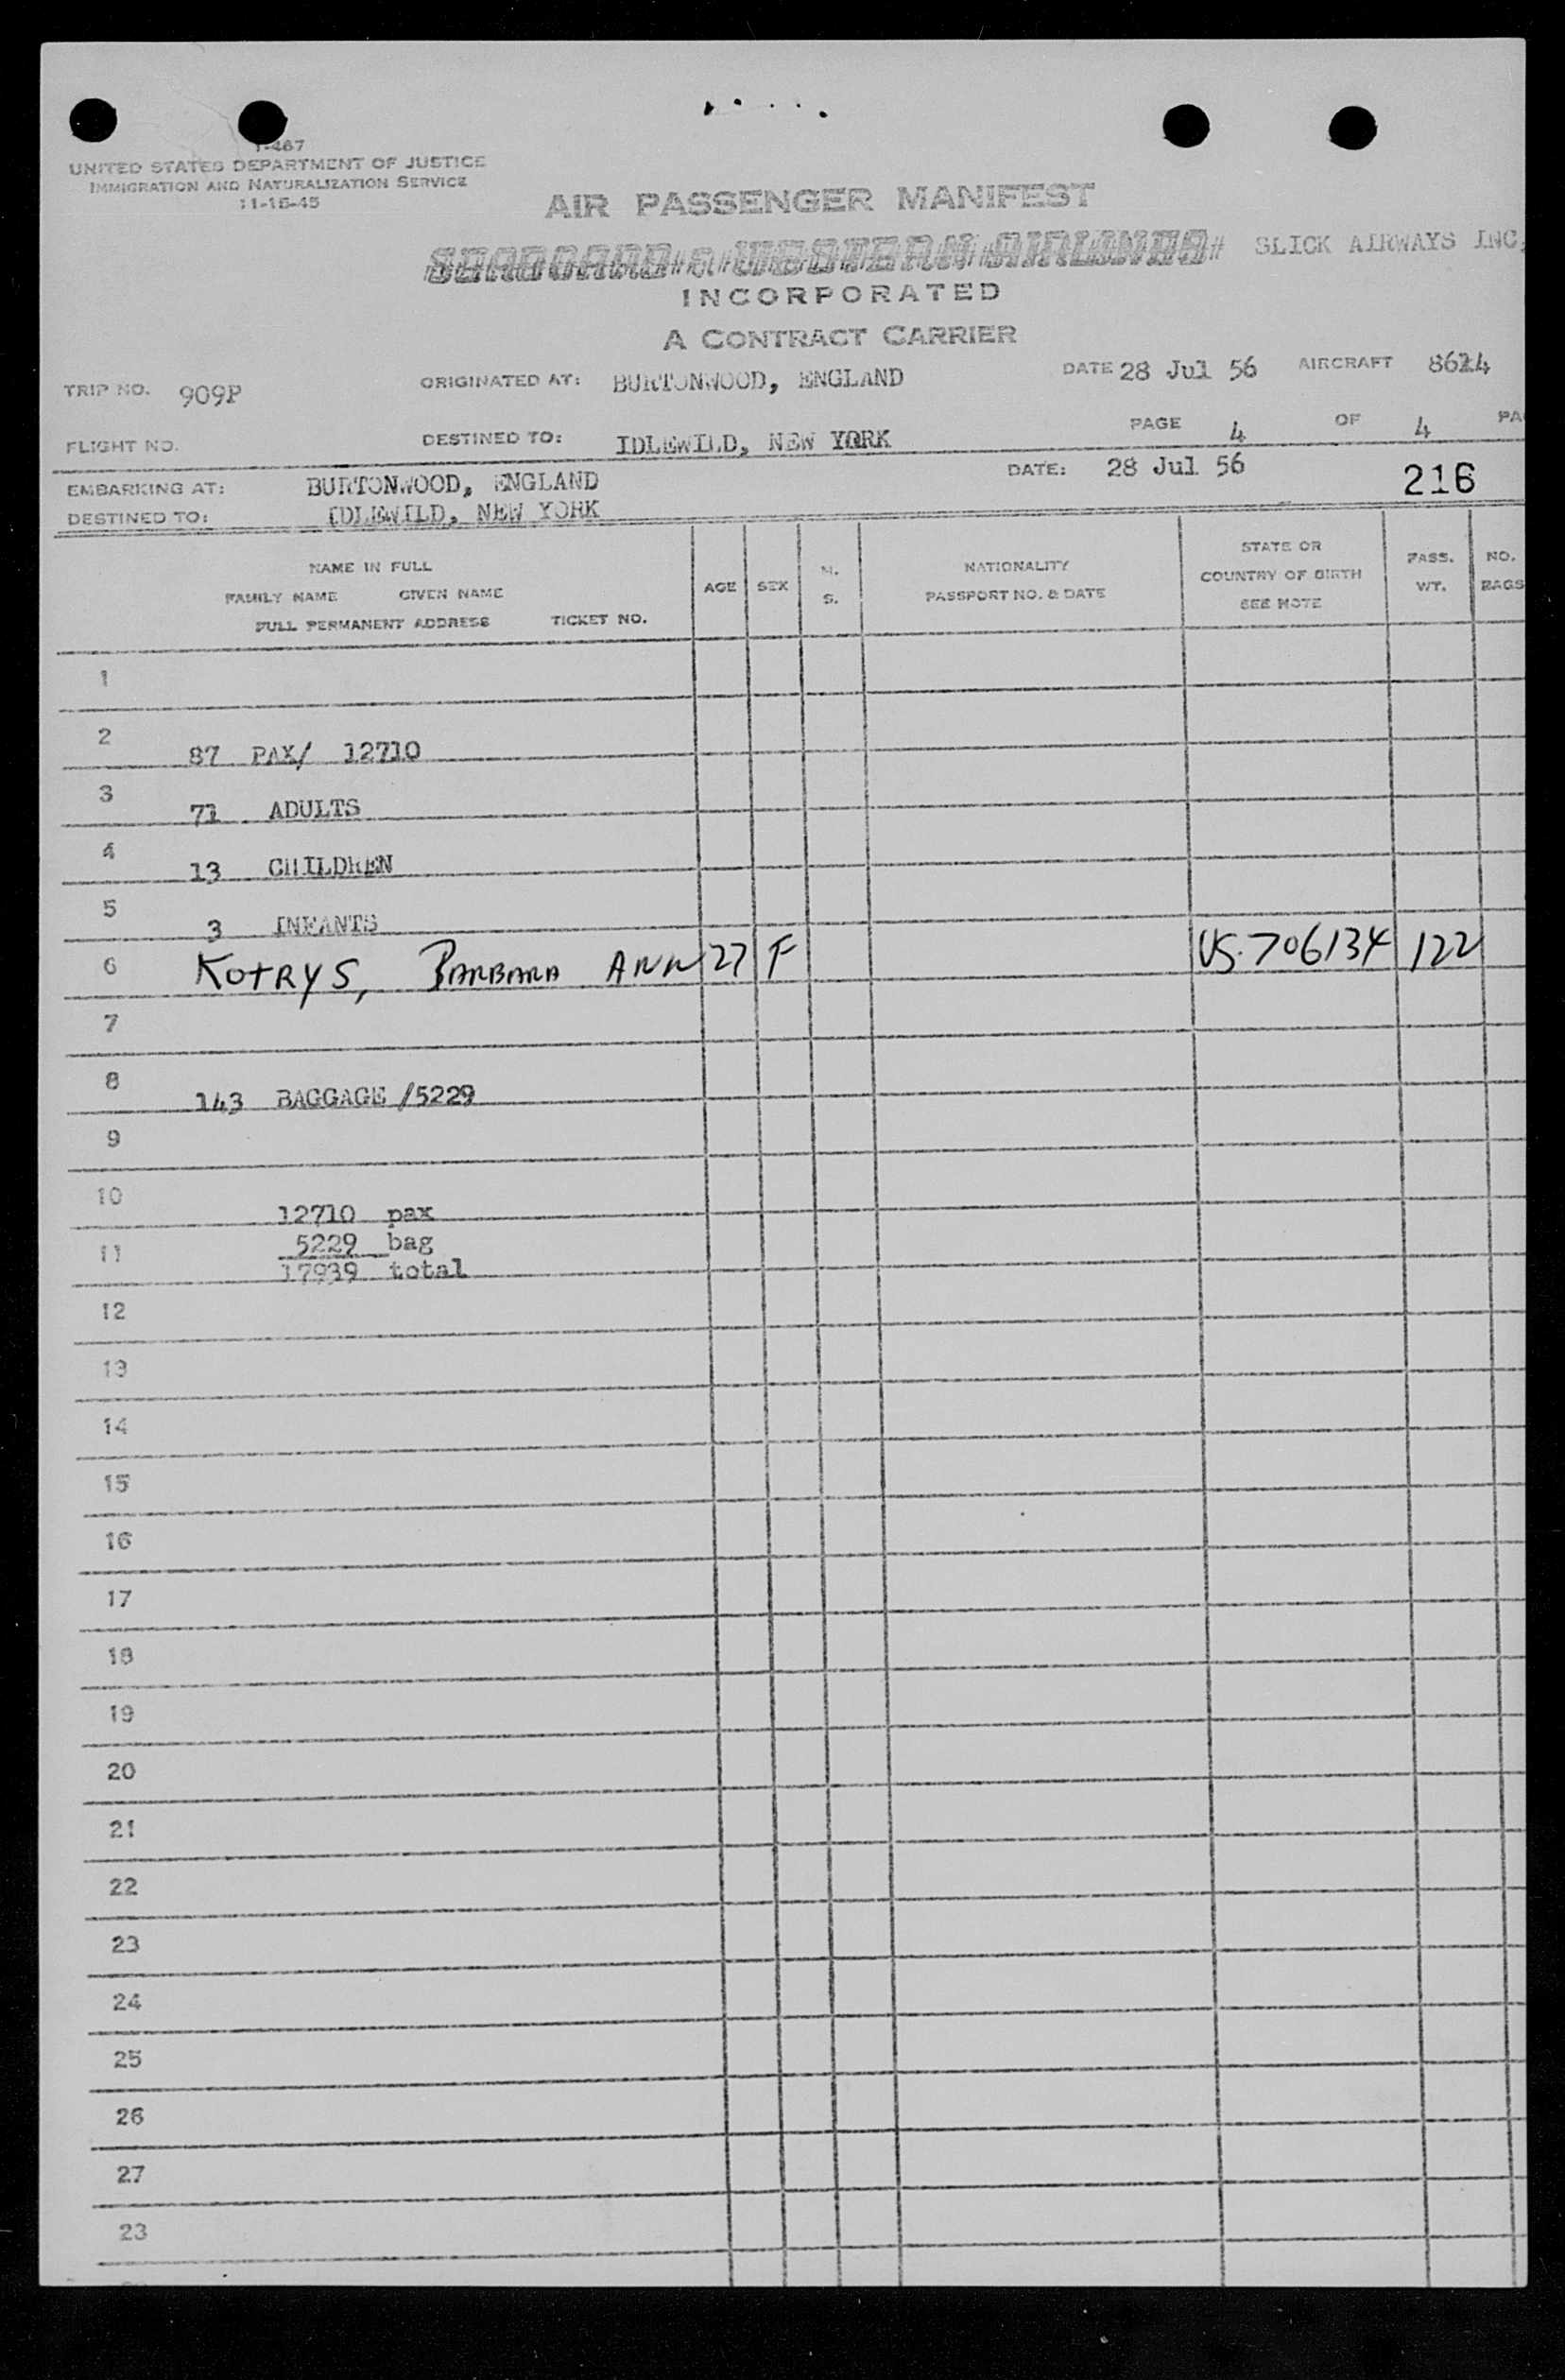 I-467
UNITED STATES DEPARTMENT OF JUSTICE
IMMIGRATION AND NATURALIZATION SERVICE
11-15-45
AIR PASSENGER MANIFEST
SEABOARD & WESTERN AIRLINES SLICK AIRWAYS INC.
INCORPORATED
A CONTRACT CARRIER
TRIP NO. 909P ORIGINATED AT: BURTONWOOD, ENGLAND DATE 28 Jul 56 AIRCRAFT 8624
FLIGHT NO. DESTINED TO: IDLEWILD, NEW YORK PAGE 4 OF 4 PA
EMBARKING AT: BURTONWOOD, ENGLAND DATE: 28 Jul 56 216
DESTINED TO: IDLEWILD, NEW YORK
NAME IN FULL
FAMILY NAME GIVEN NAME
FULL PERMANENT ADDRESS TICKET NO.
AGE SEX M. S.
NATIONALITY
PASSPORT NO. & DATE
STATE OR
COUNTRY OF BIRTH
SEE NOTE
PASS. WT.
NO. BAGS
1
2 87 PAX/ 12710
3 71 ADULTS
4 13 CHILDREN
5 3 INFANTS
6 KOTRYS, BARBARA ANN 27 F US. 706134 122
7
8 143 BAGGAGE /5229
9
10 12710 pax
11 5229 bag
17939 total
12
13
14
15
16
17
18
19
20
21
22
23
24
25
26
27
28